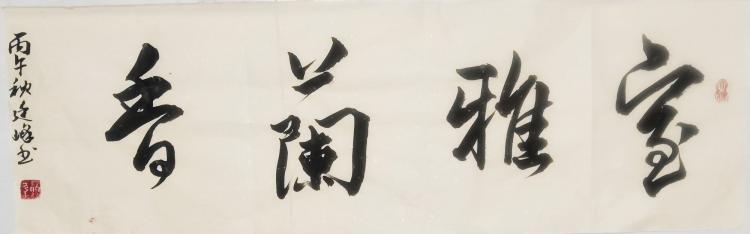 室雅蘭香
丙午秋廷峰书